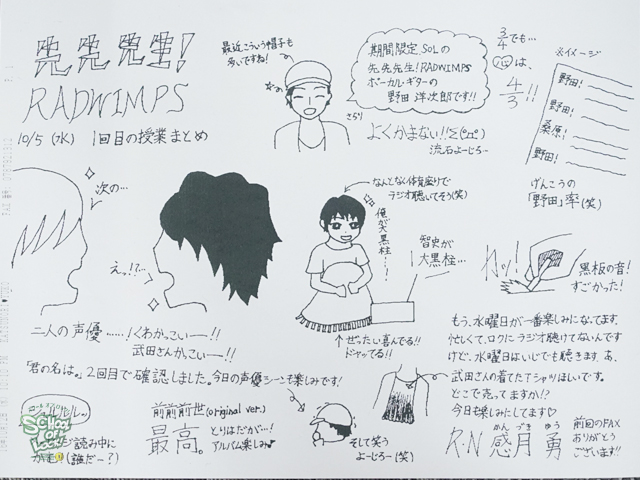 先先先生!
RADWIMPS
10/5 (水) 1回目の授業まとめ
最近こういう帽子も
多いですね!
期間限定 SOLの
先先先生!RADWIMPS
ボーカル・ギターの
野田 洋次郎です!!
さらり
よくかまない!!Σ(°Д°)
流石よーじろ…
3/4でも…
仮は、
4/3!!
※イメージ
野田!
野田!
桑原!
野田!
げんこうの
「野田」率(笑)
次の…
えっ!?…
なんとなく体育座りで
ラジオ聴いてそう(笑)
俺が大黒柱…
智史が
大黒柱…
↑ぜったい喜んでる!!
ドヤッてる!!
黒板の音!
すごかった!
二人の声優……!くわかっこいー!!
武田さんかっこいー!!
「君の名は。」2回目で確認しました。今日の声優シーンも楽しみです!
もう、水曜日が一番楽しみになってます。
忙しくて、ロクにラジオ聴けてないんです
けど、水曜日はいじでも聴きます。あ、
武田さんの着てたTシャツほしいです。
どこで売ってますか!?
今日も楽しみにしてます♡
School
of
Lock!
読み中に
(誰だー?)
前前前世(original ver.)
最高。
とりはだが…!
アルバム楽しみ
そして笑う
よーじろー(笑)
R・N 惑月 勇
かん づき ゆう
前回のFAX
ありがとう
ございます!!